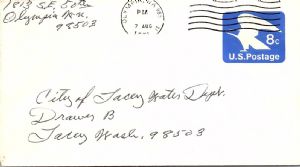 1813 S.E. 50th
Olympia Wn.
98503
OLYMPIA
PM
7 AUG
8c
U.S. Postage
City of Lacey Water Dept.
Drawer B
Lacey Wash. 98503